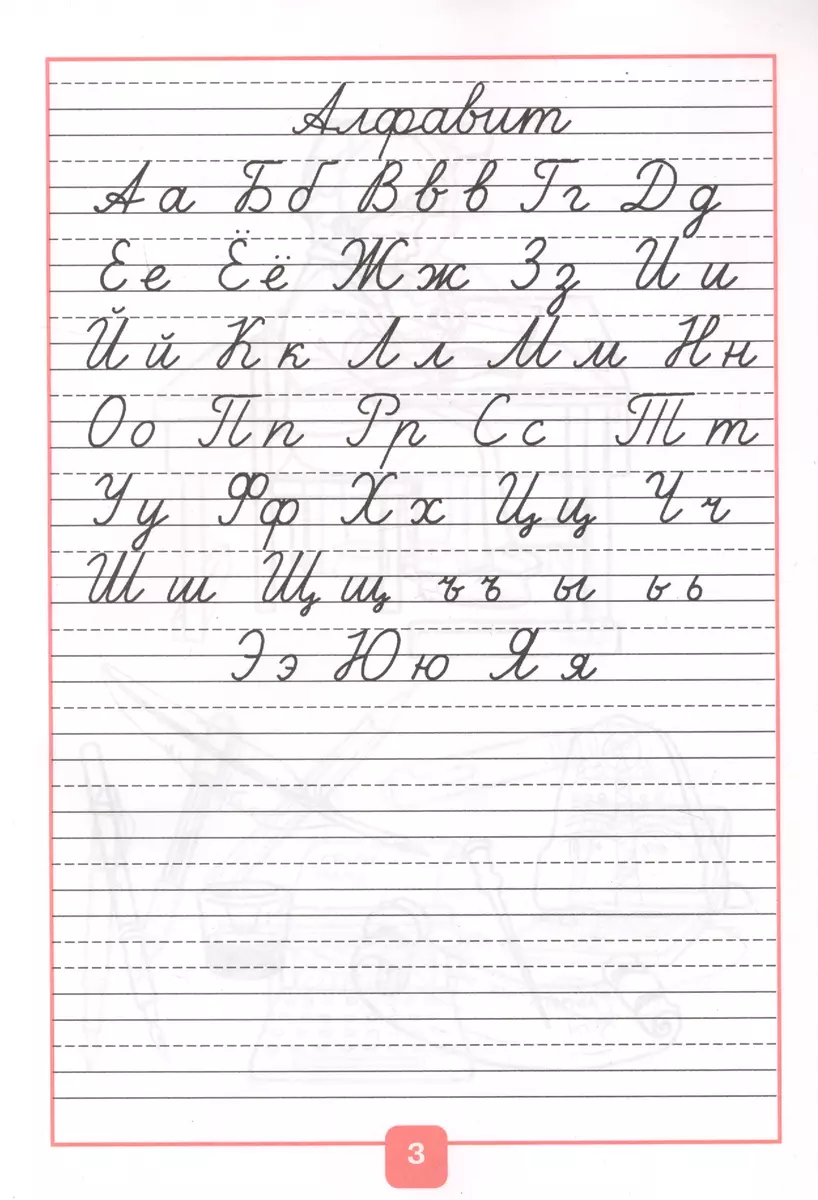 Алфавит
Аа Бб Ввв Гг Дд
Ее Ёё Жж Зз Ии
Йй Кк Лл Мм Нн
Оо Пп Рр Сс Тт
Уу Фф Хх Цц Чч
Шш Щщ ъъ ы ьь
Ээ Юю Яя
3